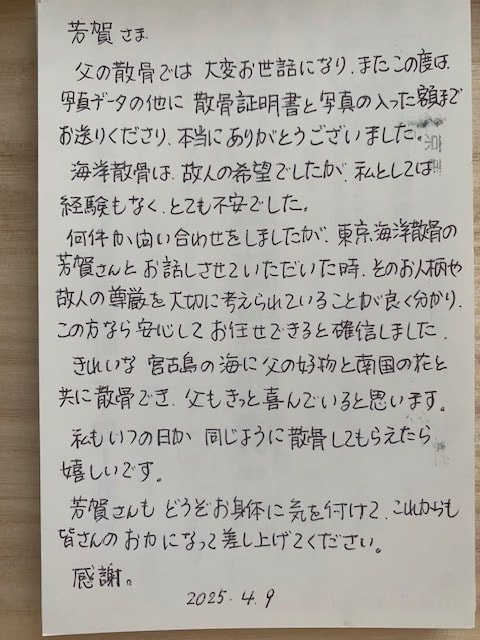 芳賀さま
父の散骨では 大変お世話になり、またこの度は、
写真データの他に 散骨証明書と写真の入った額まで
お送りくださり、本当にありがとうございました。
海洋散骨は、故人の希望でしたが、私としては
経験もなく、とても不安でした。
何件か問い合わせをしましたが、東京海洋散骨の
芳賀さんと お話しさせていただいた時、そのお人柄や
故人の尊厳を大切に考えられていることが良く分かり、
この方なら安心してお任せできると確信しました。
きれいな 宮古島の海に父の好物と南国の花と
共に散骨でき、父もきっと喜んでいると思います。
私もいつの日か 同じように散骨してもらえたら
嬉しいです。
芳賀さんも どうぞお身体に気を付けて、これからも
皆さんのお力になって差し上げてください。
感謝。
2025.4.9